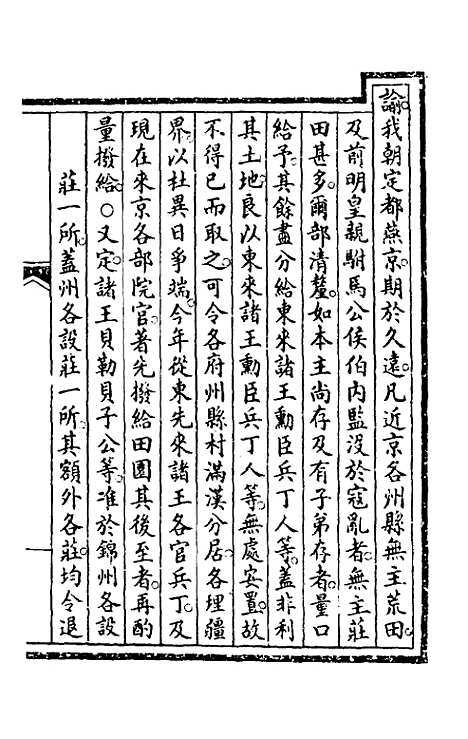 諭我朝定都燕京期於久遠凡近京各州縣無主荒田
及前明皇親駙馬公侯伯內監沒於寇亂者無主莊
田甚多爾部清釐如本主尚存及有子弟存者量口
給予其餘盡分給東來諸王勳臣兵丁人等蓋非利
其土地良以東來諸王勳臣兵丁人等無處安置故
不得已而取之可令各府州縣村滿漢分居各理疆
界以杜異日爭端今年從東先來諸王各官兵丁及
現在來京各部院官著先撥給田園其後至者再酌
量撥給○又定諸王貝勒貝子公等准於錦州各設
莊一所蓋州各設莊一所其額外各莊均令退